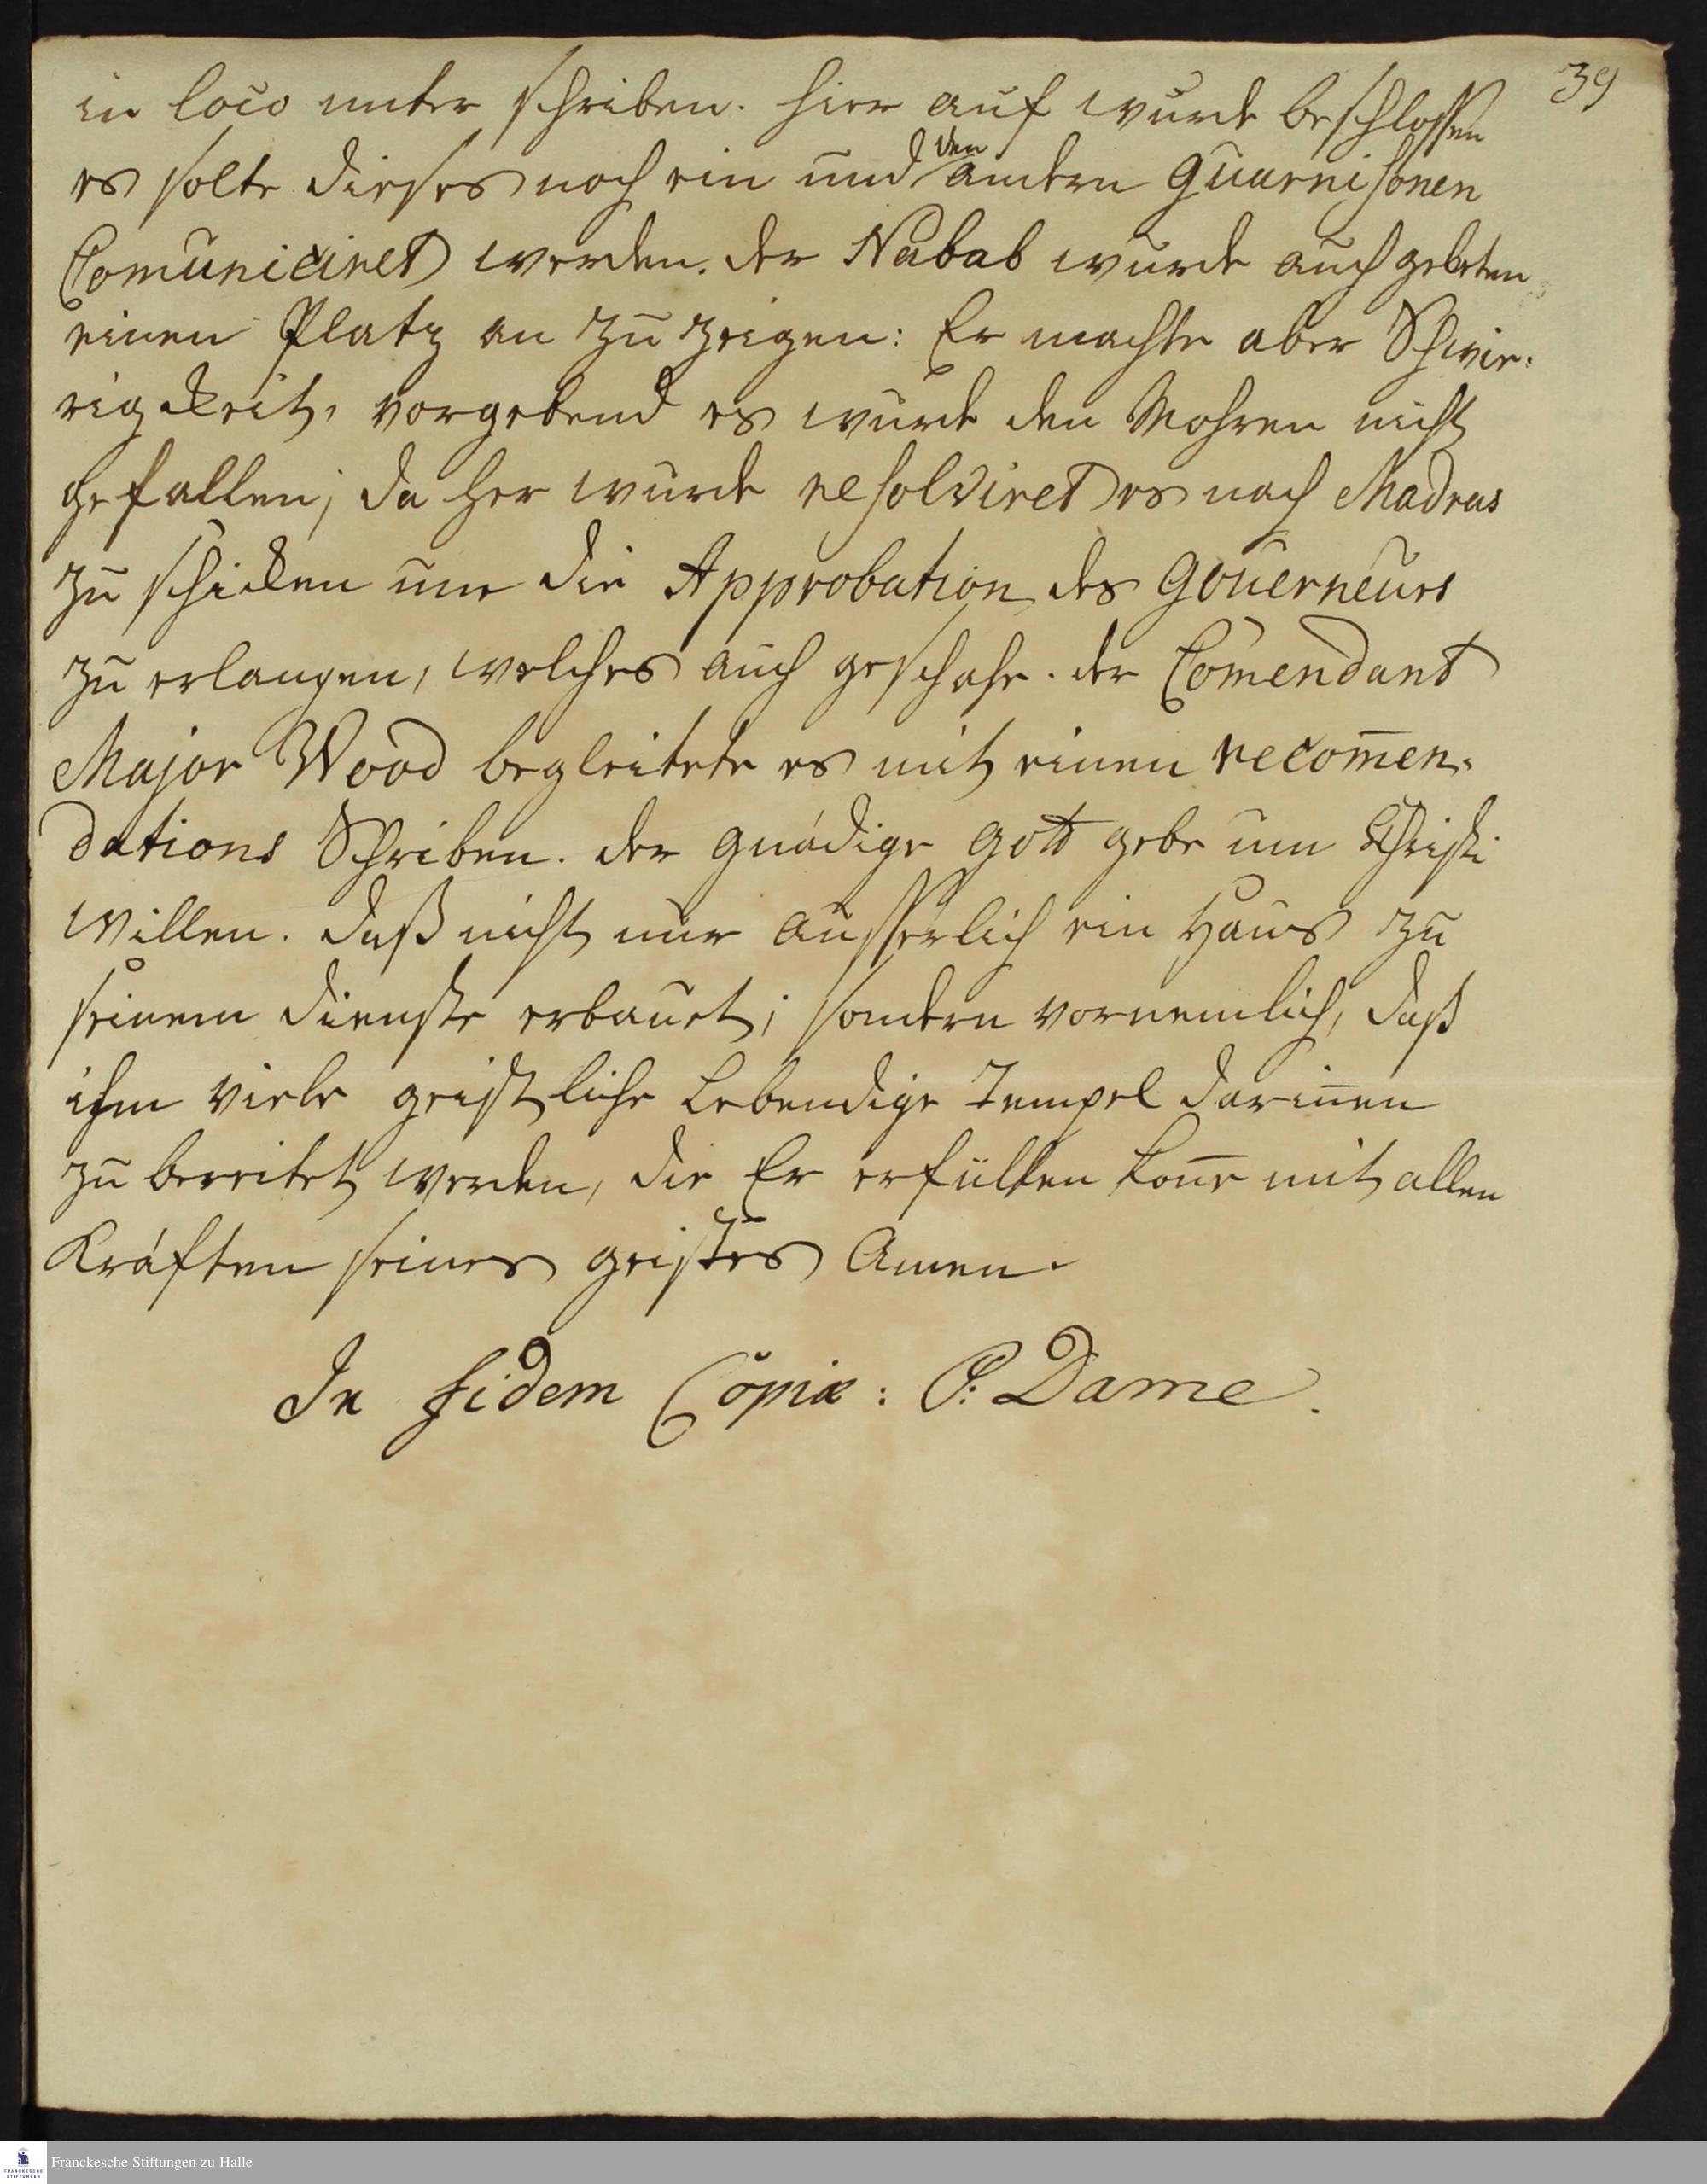 39
in loco unter schriben. hier auf wurde beschlossen
es solte dieses noch ein und den andern Guarnisonen
Comuniciret werden. der Nabab wurde auch gebeten
einen Platz an zu zeigen: Er machte aber Schwie-
rigckeit, vorgebend es wurde den Mohren nicht
gefallen; da her wurde resolviret es nach Madras
zu schicken um die Approbation des Gouerneurs
zu erlangen, welches auch geschahe. der Com̄endant
Major Wood begleitete es mit einem recom̄en-
dations Schriben. der gnädige Gott gebe um Christi
willen. daß nicht nur äusserlich ein Haus zu
seinem dienste erbauet; sondern vornemlich, daß
ihm viele geistliche Lebendige Tempel darin̄en
zu bereitet werden, die Er erfüllen kon̄e mit allen
Kräften seines geistes Amen.
In fidem Copiæ: P: Dame.
Franckesche Stiftungen zu Halle
FRANCKESCHE
STIFTUNGEN